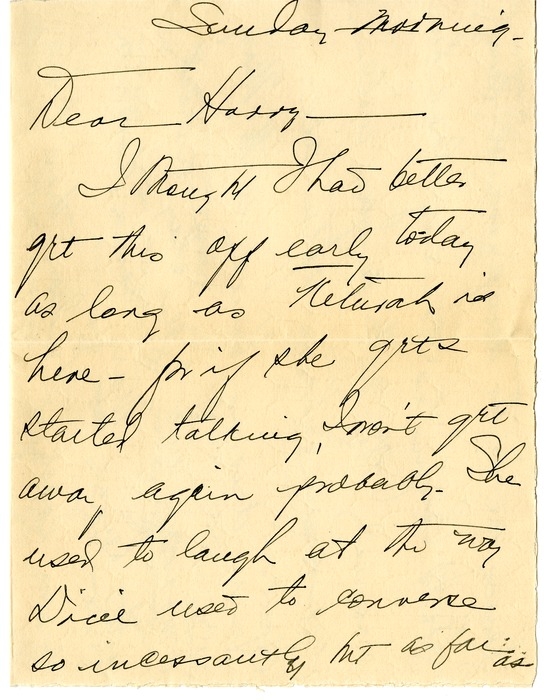 Sunday Morning.
Dear Harry
I thought I had better
get this off early today
as long as Keturah is
here - for if she gets
started talking, I won't get
away again probably. She
used to laugh at the way
Dicie used to converse
so incessantly but as far as